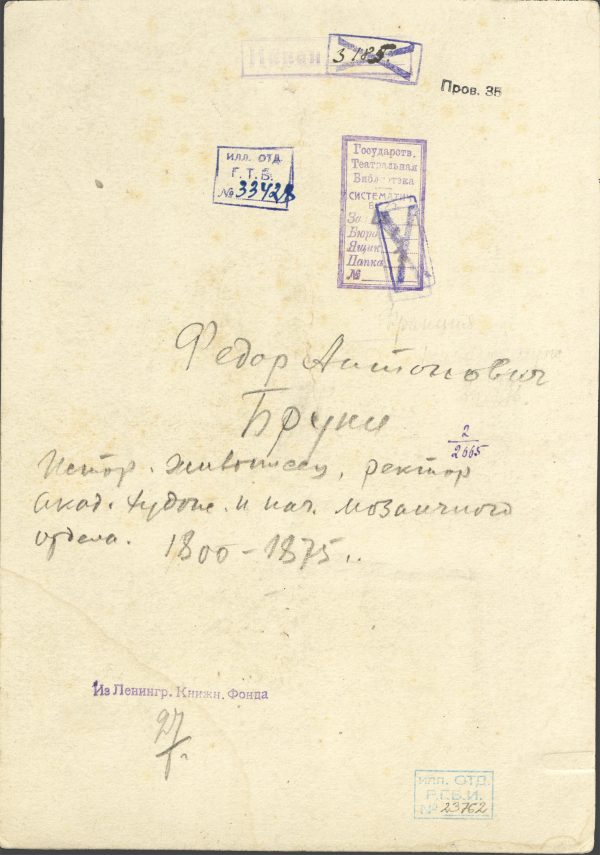 3185
Пров. 35
ИЛЛ. ОТД.
Г.Т.Б.
№ 33428
Государств.
Театральная
Библиотека
СИСТЕМАТИЧ
За
Бюро
Ящик
Папка
№
Франция
Федор Антонович
Бруни
2
2665
Истор. живописец, ректор
Акад. Худож. и нач. мозаичного
отдела. 1800-1875..
Из Ленингр. Книжн. Фонда
ИЛЛ. ОТД.
Р.Г.Б.И.
№ 23762